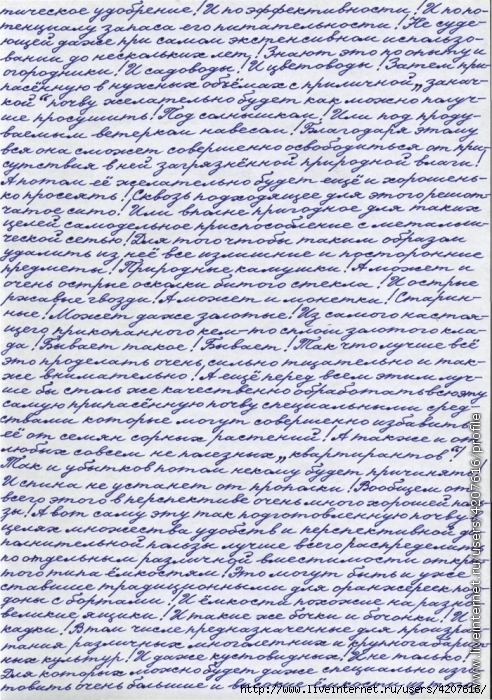 мическое удобрение! И по эффективности! И по по-
тенциалу запаса его питательности! Не суде-
ющей даже при самом экспенсивном использо-
вании до нескольких лет! Знают это по опыту и
огородники! И садоводы! И цветоводы! Затем при-
пасённую в нужных объёмах с приличной „занач-
кой“ почву желательно будет как можно получ-
ше просушить! Под солнышком! Или под проду-
ваемым ветерком навесом! Благодаря этому
вся она сможет совершенно освободиться от при-
сутствия в ней загрязнённой природной влаги!
А потом её желательно будет ещё и хорошень-
ко просеять! Сквозь подходящее для этого решот-
чатое сито! Или вполне пригодное для таких
целей самодельное приспособление с металли-
ческой сетью! Для того чтобы таким образом
удалить из неё все излишние и посторонние
предметы! Природные камушки! А может и
очень острые осколки битого стекла! И острые
ржавые гвозди! А может и монетки! Старин-
ные! Может даже золотые! Из самого настоя-
щего прикопанного кем-то слоям золотого кла-
да! Бывает такое! Бывает! Так что лучше всё
это проделать очень сильно тщательно и так-
же внимательно! А ещё перед всем этим луч-
ше бы столь же качественно обработать всю эту
самую припасённую почву специальными сред-
ствами которые могут совершенно избавить
её от семян сорных растений! А также и от
любых совсем не полезных „квартирантов“!
Так и убытков потом некому будет причинять!
И спина не устанет от прополки! Вообщем от
всего этого в перспективе очень много хорошей поль-
зы! А вот саму эту так подготовленную почву в
целях множества удобств и перспективной до-
полнительной пользы лучше всего распределить
по отдельным различной вместимости откры-
того типа ёмкостям! Это могут быть и уже
ставшие традиционными для оранжереек под-
доны с бортами! И ёмкости похожие на разно
великие ящики! И такие же бочки и бочонки! И
кадки! В том числе предназначенные для произрас-
тания различных многолетних и крупногабарит-
ных культур! И даже кустовидных! И не только!
Для которых можно будет даже специально изго-
товить очень большие и вместительные
www.liveinternet.ru/users/4207616/profile
http://www.liveinternet.ru/users/4207616/